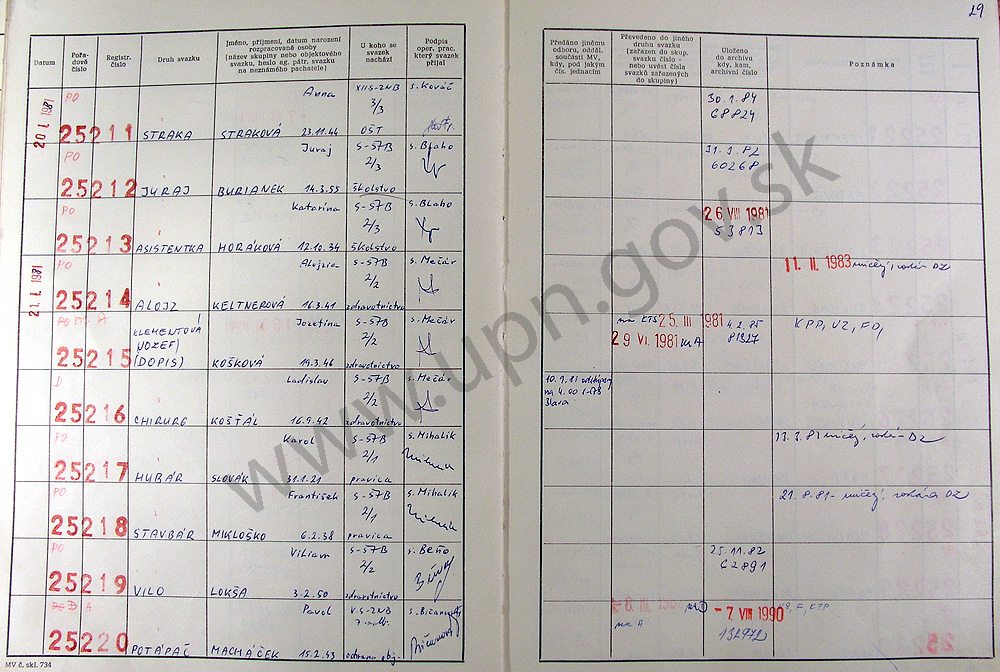 29
Datum
Pořadové číslo
Registr. číslo
Druh svazku
Jméno, příjmení, datum narození rozpracované osoby (název skupiny nebo objektového svazku, heslo ag. pátr. svazku na neznámého pachatele)
U koho se svazek nachází
Podpis oper. prac. který svazek přijal
Předáno jinému odboru, odděl. součásti MV, kdy, pod jakým čís. jednacím
Převedeno do jiného druhu svazku (zařazen do skup. svazku číslo - nebo uvést čísla svazků zařazených do skupiny)
Uloženo do archívu kdy, kam, archivní číslo
Poznámka
20 I. 1981
PO Anna XII S-ZNB s. Kováč 30.1.84
3/3 68824
25211 STRAKA STRAKOVÁ 23.11.44 OŠT
PO Juraj S-ŠTB s. Blaho
2/3 60268
25212 JURAJ BURIANEK 14.3.55 školstvo
PO Katarína S-ŠTB s. Blaho 26. VIII 1981
2/3 53813
25213 ASISTENTKA HORÁKOVÁ 12.10.34 školstvo
21. I. 1981
PO Alojzia S-ŠTB s. Mečár 11. II. 1983
2/2
25214 ALOJZ KELTNEROVÁ 16.3.41 zdravotníctvo
PO KTS A KLEMENTOVÁ Jozefína S-ŠTB s. Mečár na KTS 25 III 1981 4.2.85 KPP, VZ, FO,
(JOZEF) 2/2 29 VI. 1981 na A 81327
25215 (DOPIS) KOŠKOVÁ 19.3.46 zdravotníctvo
D Ladislav S-ŠTB s. Mečár
2/2
25216 CHIRURG KOŠŤÁL 16.9.42 zdravotníctvo
PO Karol S-ŠTB s. Mihalik
2/1
25217 HUBÁR SLOVÁK 31.1.21 pravica
PO František S-ŠTB s. Mihalik 21.8.81-
2/1
25218 STAVBÁR MIKLOŠKO 6.2.38 pravica
PO Viliam S-ŠTB s. Beňo 25.11.82
2/2 62891
25219 VILO LOKŠA 3.2.50 zdravotníctvo
PO D A Pavol V.S-ZNB - 7. VIII 1990
na A 132972
25220 POTÁPAČ MACHÁČEK 15.2.53 ochrana obj.
MV č. skl. 734
www.upn.gov.sk